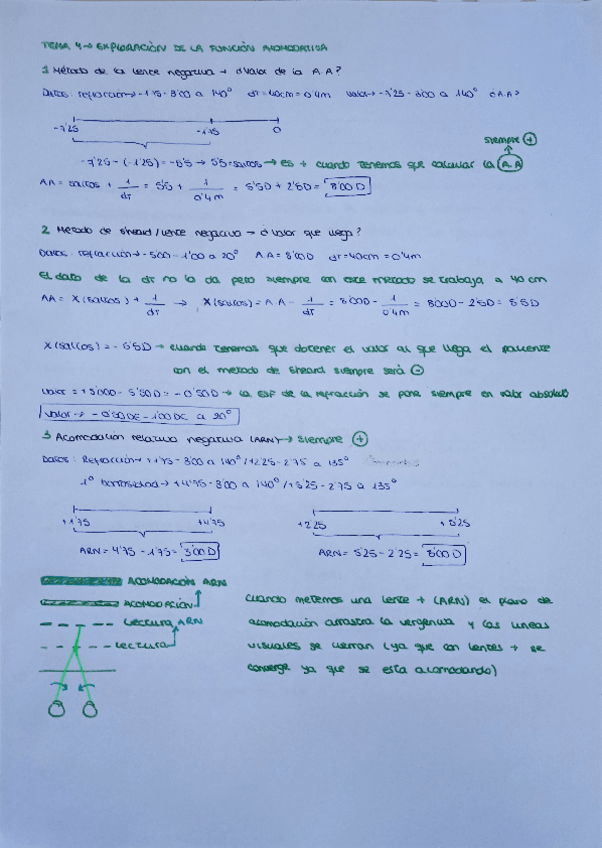 TEMA 4 → EXPLORACIÓN DE LA FUNCIÓN ACOMODATIVA
1 Método de la lente negativa → ¿Valor de la A.A?
Datos: refracción → -1'75 - 3'00 a 140° dr = 40cm = 0'4m Valor → -7'25 - 3'00 a 140° ¿AA?
-7'25 -1'75 0
siempre +
-7'25 - (-1'25) = -5'5 → 5'5 = saltos → es + cuando tenemos que calcular la A.A
AA = saltos + 1/dr = 5'5 + 1/0'4m = 5'5D + 2'5D = 8'00D
2 Método de sheard / lente negativo → ¿Valor que llega?
Datos: refracción → -5'00 - 1'00 a 20° A.A = 8'00D dr = 40cm = 0'4m
El dato de la dr no la da pero siempre con este metodo se trabaja a 40 cm
AA = X (saltos) + 1/dr → X (saltos) = AA - 1/dr = 8'00D - 1/0'4m = 8'00D - 2'5D = 5'5D
X (saltos) = - 5'5D → cuando tenemos que obtener el valor al que llega el paciente
con el metodo de Sheard siempre será -
Valor = +5'00D - 5'50D = -0'50D → la ESF de la refracción se pone siempre en valor absoluto
Valor → -0'50DE - 1'00DC a 20°
3 Acomodación relativa negativa (ARN) → siempre +
Datos: Refracción → +1'75 - 3'00 a 140° / +2'25 - 2'75 a 135°
1° borrosidad → +4'75 - 3'00 a 140° / +5'25 - 2'75 a 135°
+1'75 +4'75 +2'25 +5'25
ARN = 4'75 - 1'75 = 3'00D ARN = 5'25 - 2'25 = 3'00D
ACOMODACIÓN ARN
ACOMODACIÓN
Lectura ARN
Lectura
Cuando metemos una lente + (ARN) el plano de
acomodación arrastra la vergencia y las lineas
visuales se cierran (ya que con lentes + se
converge ya que se esta acomodando)